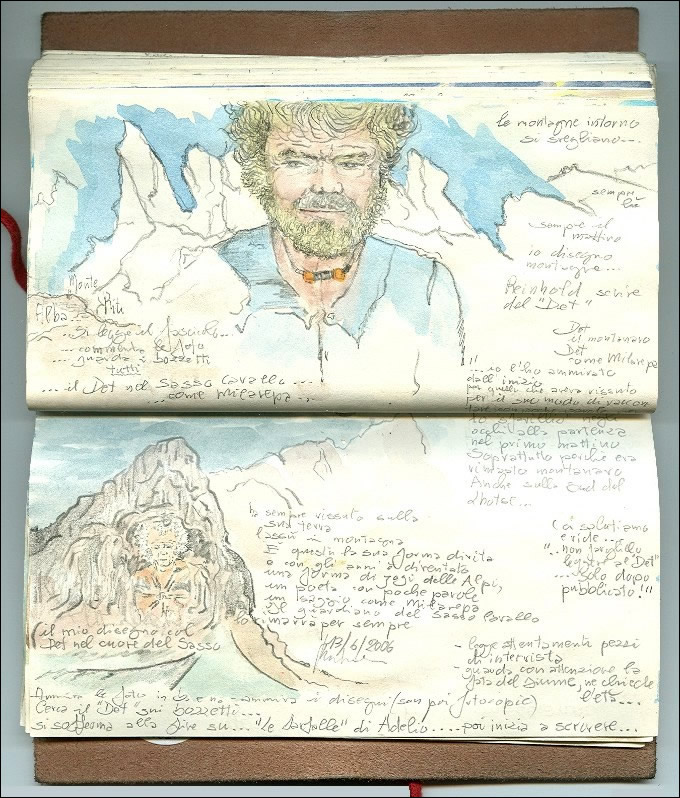 le montagne intorno
si svegliano...
sempre
lui
sempre al
mattino
io disegno
montagne...
Reinhold scrive
del "Det"
Det
il montanaro
Det
come Milarepa
Monte
Alba Piti
...Si legge il fascicolo...
... commenta le foto
... guarda i bozzetti
tutti
... il Det nel Sasso Cavallo...
...come Milarepa...
"...io l'ho ammirato
dall'inizio
per quello che aveva vissuto
per il suo modo di raccon
occhi alla partenza
nel primo mattino
Soprattutto perché era
rimasto montanaro
Anche sulla Sud del
Lhotse...
ha sempre vissuto sulla
sua terra
lassù in montagna
E questa la sua forma di vita
e con gli anni è diventato
una forma di Yeti delle Alpi,
un poeta con poche parole
un saggio come Milarepa
Il guardiano del Sasso Cavallo
rimarrà per sempre
13/6/2006
Ci salutiamo
e ride...
"...non farglielo
leggere al Det"
...Solo dopo
pubblicato!"
il mio disegno col
Det nel cuore del Sasso
- legge attentamente pezzi
di intervista
- guarda con attenzione la
foto del Siume, ne chiede
l'età...
Ammira le foto in b. e n. ammira i disegni (son poi fotocopie)
Cerca il "Det" sui bozzetti...
si sofferma alla fine su... "Le farfalle" di Adelio.... poi inizia a scrivere...